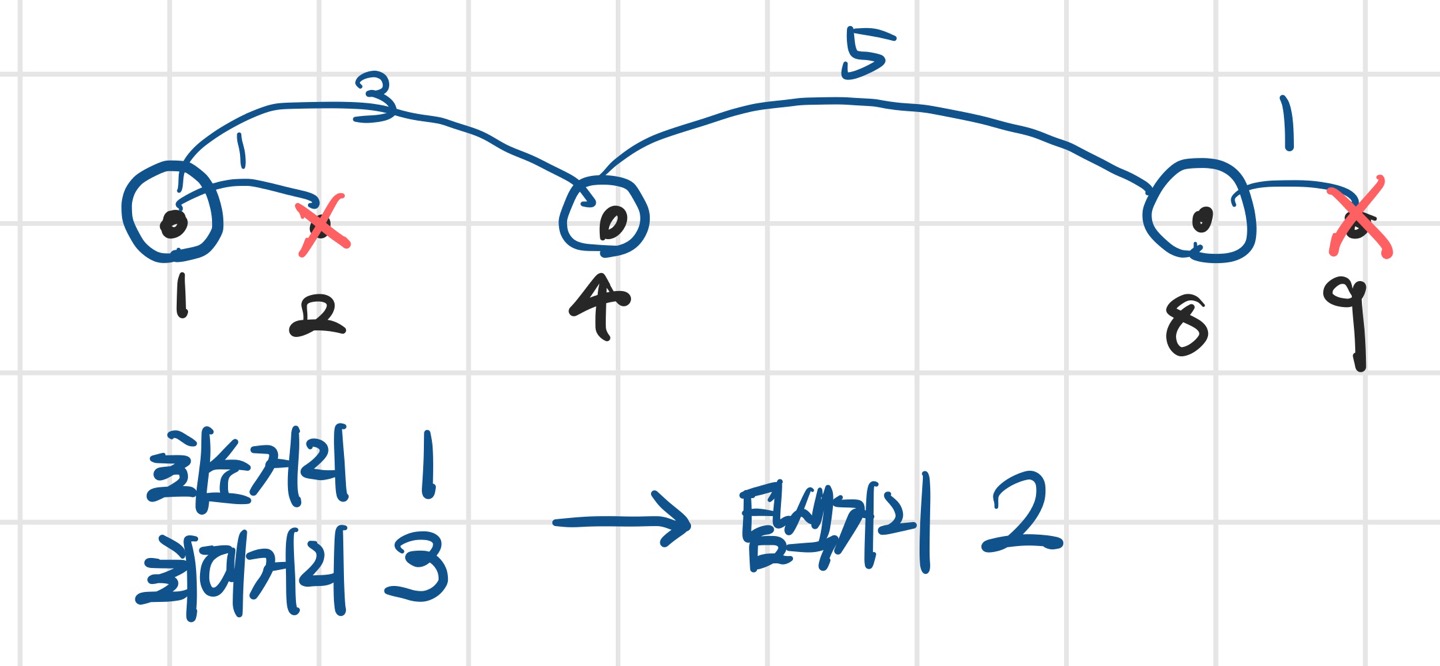 5
3
1
1
1 2 4 8 9
최소거리 1
최대거리 3 → 탐색거리 2